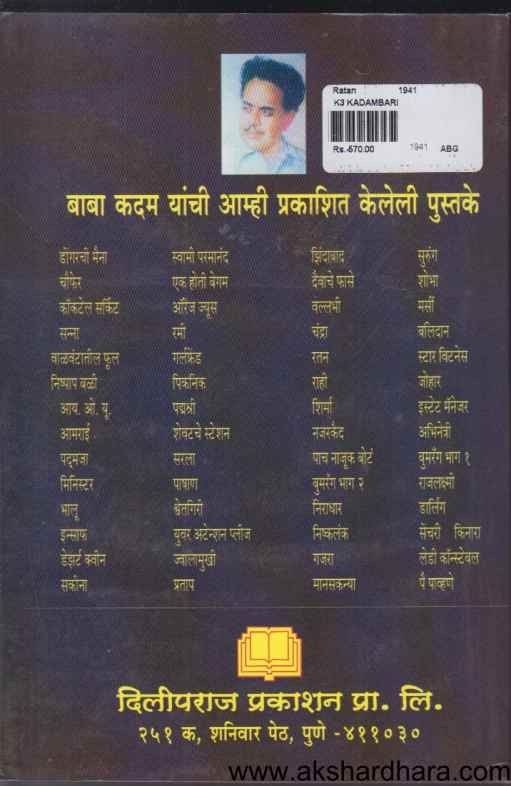 Ratan 1941
K3 KADAMBARI
Rs.-570.00 1941 ABG
बाबा कदम यांची आम्ही प्रकाशित केलेली पुस्तके
डोंगरची मैना स्वामी परमानंद झिंदाबाद सुरुंग
चौफेर एक होती बेगम दैवाचे फासे शोभा
कॉकटेल सर्किट ऑरेंज ज्यूस वल्लभी मर्सी
सन्ना रमी चंद्रा बलिदान
वाळवंटातील फूल गर्लफ्रेंड रतन स्टार विटनेस
निष्पाप बळी पिकनिक राही जोहार
आय. ओ. यू. पद्मश्री शिर्मा इस्टेट मॅनेजर
आमराई शेवटचे स्टेशन नजरकैद अभिनेत्री
पद्मजा सरला पाच नाजूक बोटं बुमरँग भाग १
मिनिस्टर पाषाण बुमरँग भाग २ राजलक्ष्मी
भालू श्वेतगिरी निराधार डार्लिंग
इन्साफ युवर अटेन्शन प्लीज निष्कलंक सेंचरी किनारा
डेझर्ट क्वीन ज्वालामुखी गजरा लेडी कॉन्स्टेबल
सकीना प्रताप मानसकन्या पै पाव्हणे
दिलीपराज प्रकाशन प्रा. लि.
२५१ क, शनिवार पेठ, पुणे -४११०३०
www.akshardhara.com